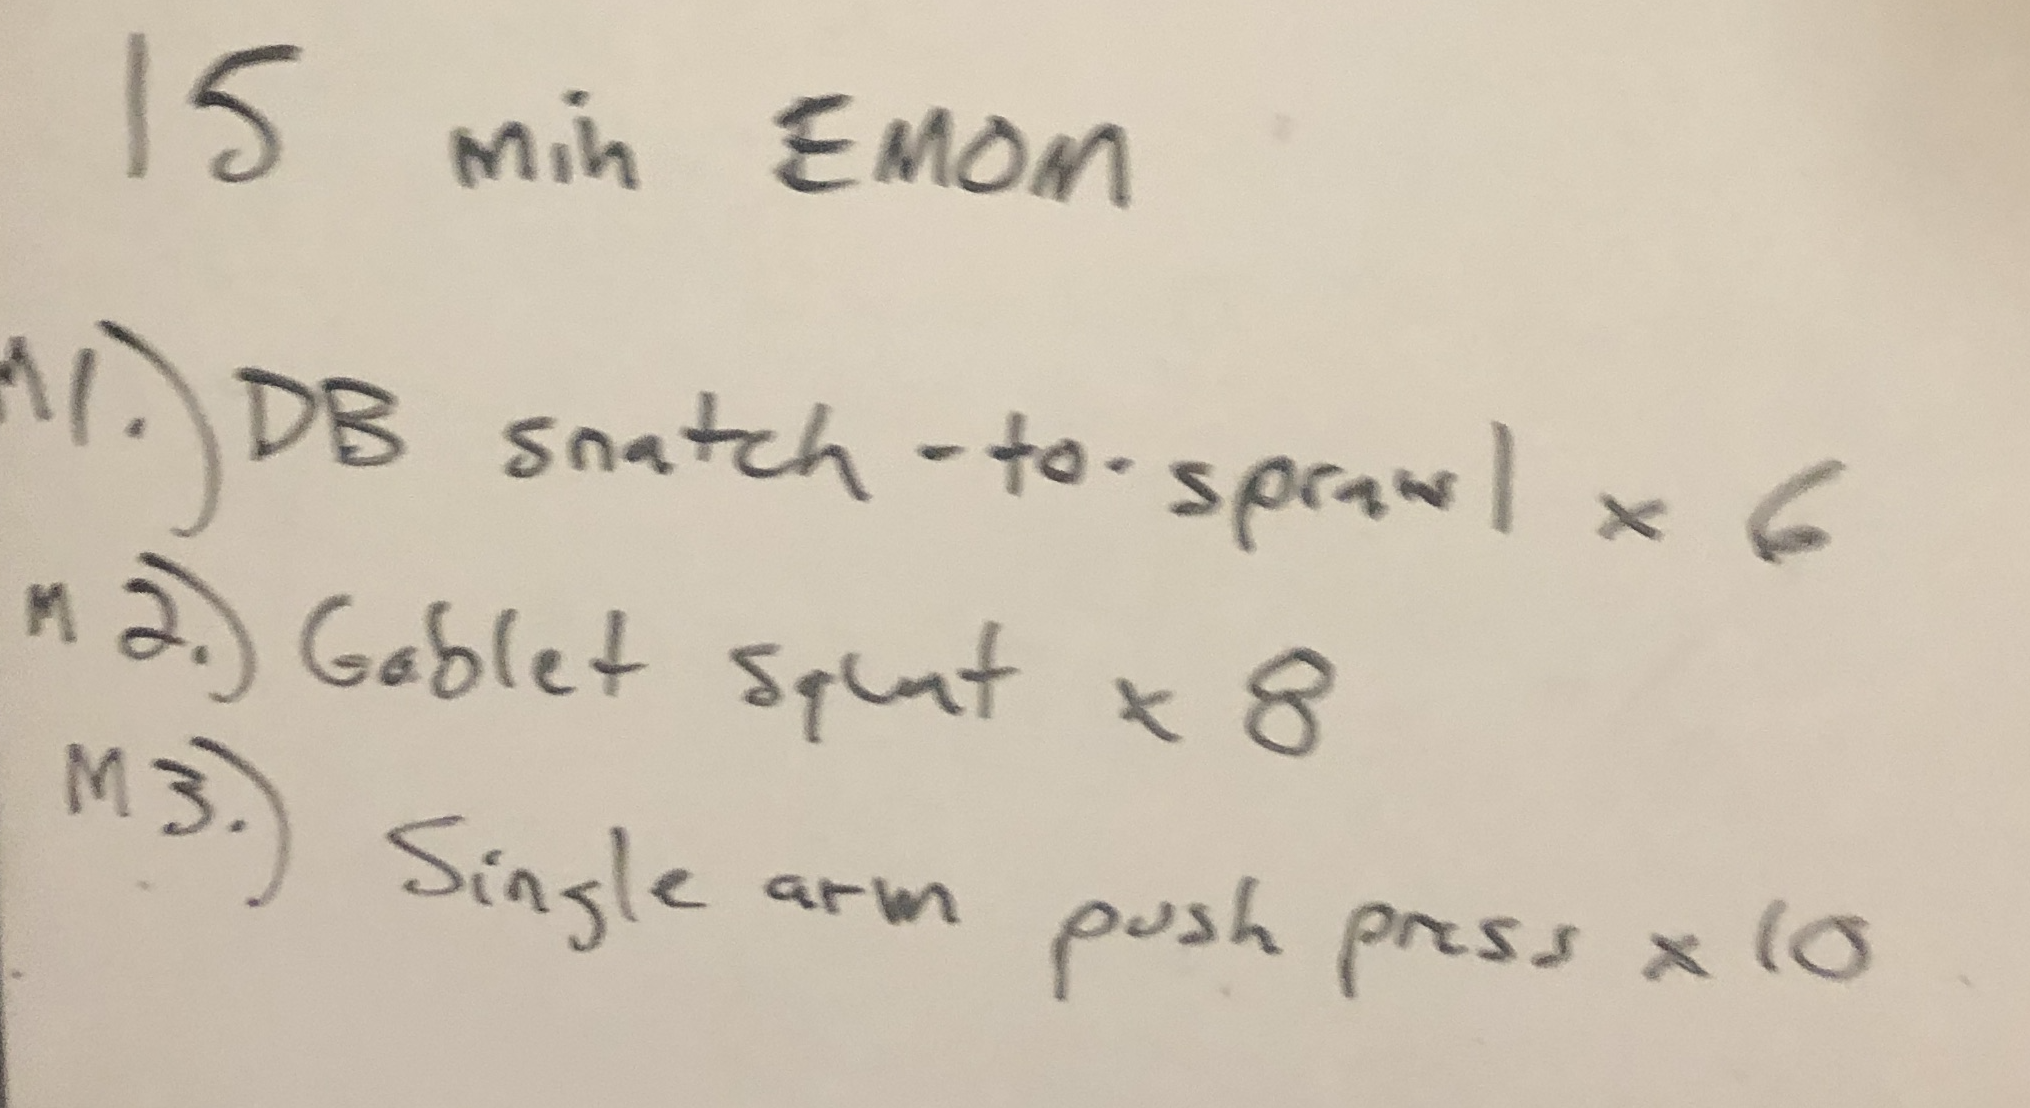 15 min EMOM
M1.) DB snatch-to-sprawl x 6
M 2.) Goblet squat x 8
M 3.) Single arm push press x 10